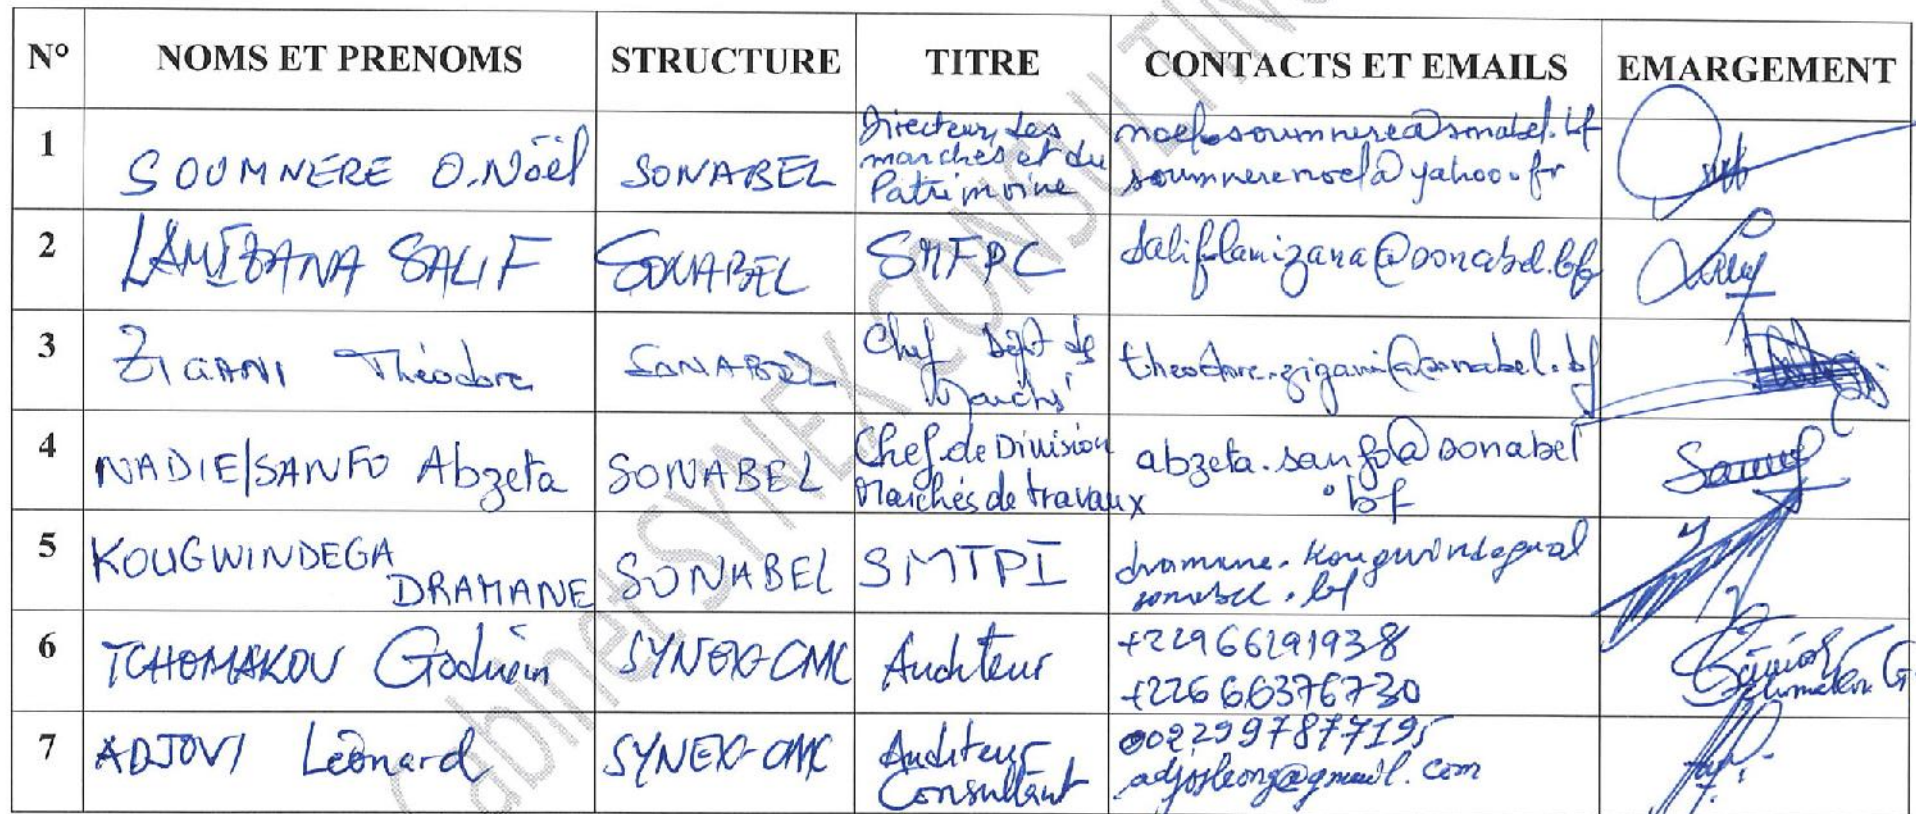 N° NOMS ET PRENOMS STRUCTURE TITRE CONTACTS ET EMAILS EMARGEMENT
1 SOUMNERE O. Noël SONABEL Directeur des marchés et du Patrimoine noel.soumnere@sonabel.bf soumnerenoel@yahoo.fr
2 LAMIZANA SALIF SONABEL SMFPC salif.lamizana@sonabel.bf
3 ZIGANI Théodore SONABEL Chef Dépt des Marchés theodore.zigani@sonabel.bf
4 NADIE/SANFO Abzeta SONABEL Chef de Division Marchés de travaux abzeta.sanfo@sonabel.bf
5 KOUGWINDEGA DRAMANE SONABEL SMTPI dramane.kougwindega@sonabel.bf
6 TCHOMAKOU Goduin SYNEX-CMC Auditeur +22966191938 +22666376730
7 ADJOVI Léonard SYNEX-CMC Auditeur Consultant 0022997877195 @gmail.com
Cabinet SYNEX CONSULTING